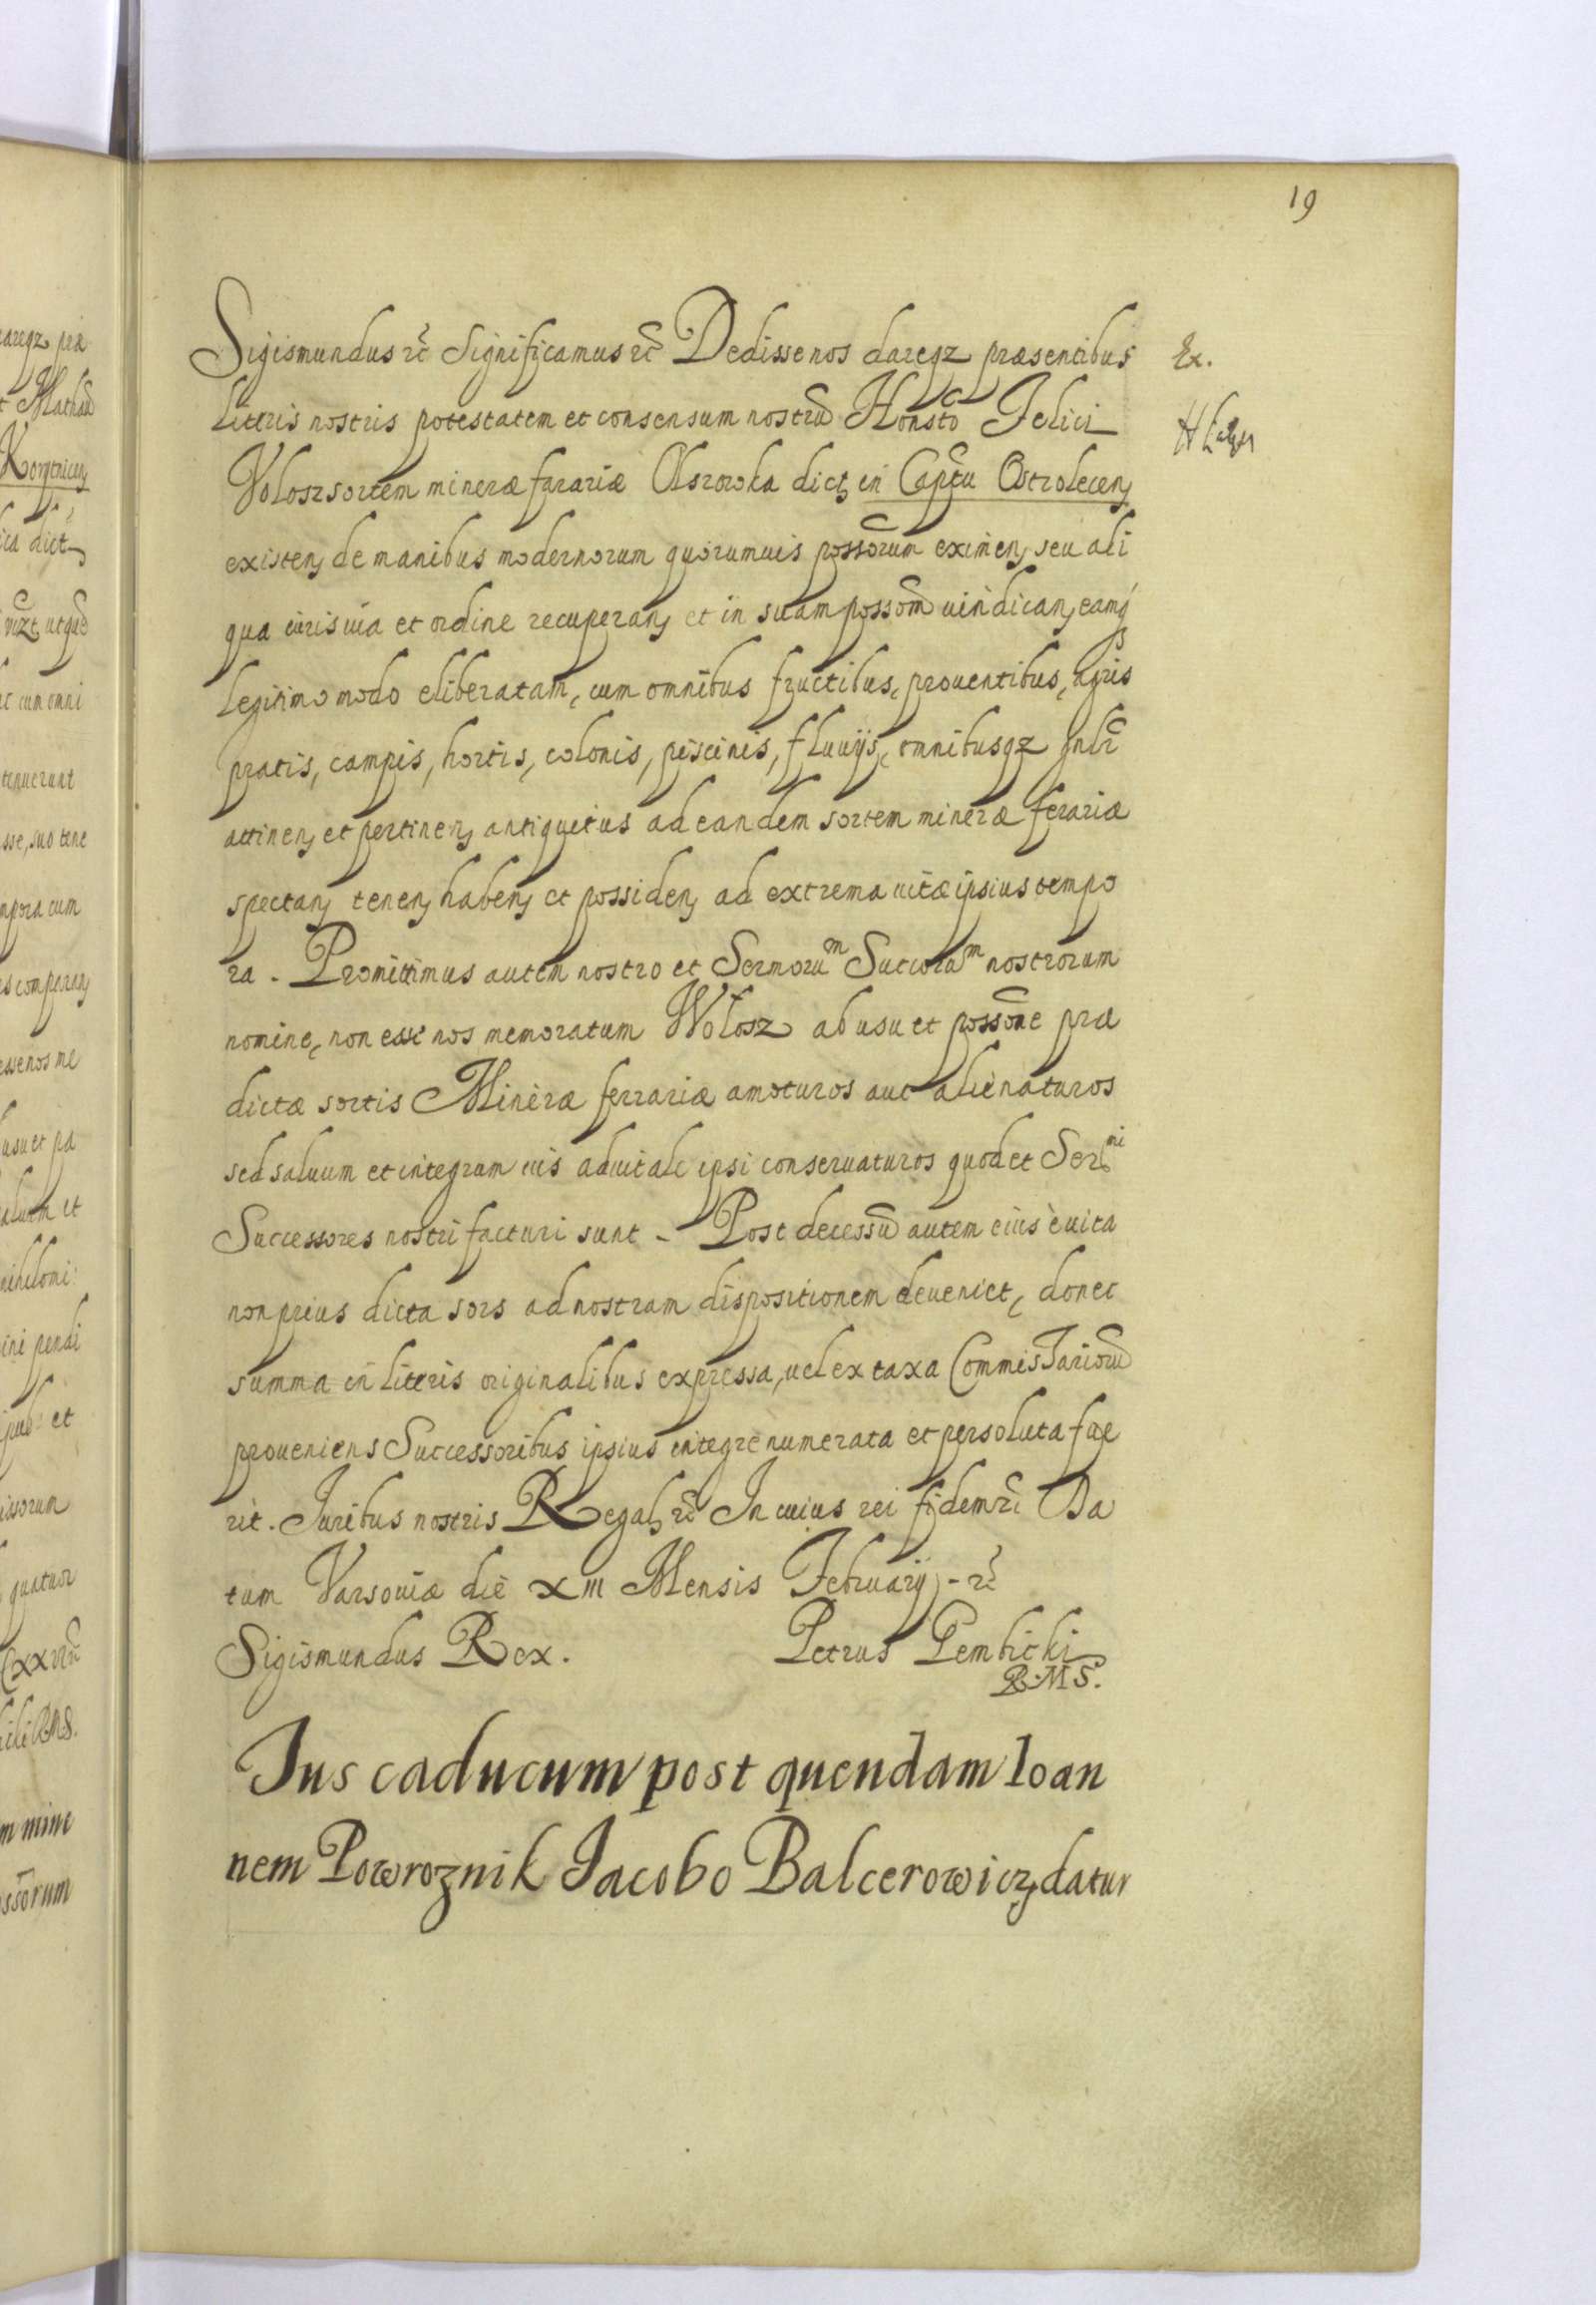 19
Sigismundus rc̃ Significamus rc̃ Dedisse nos dareqz præsentibus
Ex.
literis nostris potestatem et consensum nostrũ Honsto Felici
Volosz sortem mineræ ferariæ Olszowka dict in Captu Ostrolecen
existen de manibus modernorum quorumuis possorum eximen seu ali
qua iuris uia et ordine recuperan et in suam possom uindican eamq
legitimo modo eliberatam, cum omnibus fructibus, prouentibus, agris
pratis, campis, hortis, colonis, piscinis, fluuijs, omnibusqz gnlr
attinen et pertinen antiquitus ad eandem sortem mineræ ferariæ
spectan tenen haben et possiden ad extrema uitæ ipsius tempo
ra. Promittimus autem nostro et Sermorum Succorum nostrorum
nomine, non esse nos memoratum Wołosz ab usu et possone præ
dictæ sortis Mineræ ferrariæ amoturos aut alienaturos
sed saluum et integrum ius aduitale ipsi conseruaturos quod et Sermi
Successores nostri facturi sunt - Post decessũ autem eius è uita
non prius dicta sors ad nostram dispositionem deueniet, donec
summa in literis originalibus expressa, uel ex taxa Commissariorũ
proueniens Successoribus ipsius integrè numerata et persoluta fue
rit. Iuribus nostris Regal rc̃ In cuius rei fidem rc̃ Da
tum Varsouiæ die XIII Mensis Februarij - rc̃
Sigismundus Rex. Petrus Gembicki
R. M. S.
Ius caducum post quendam Ioan
nem Powroznik Iacobo Balcerowicz datur